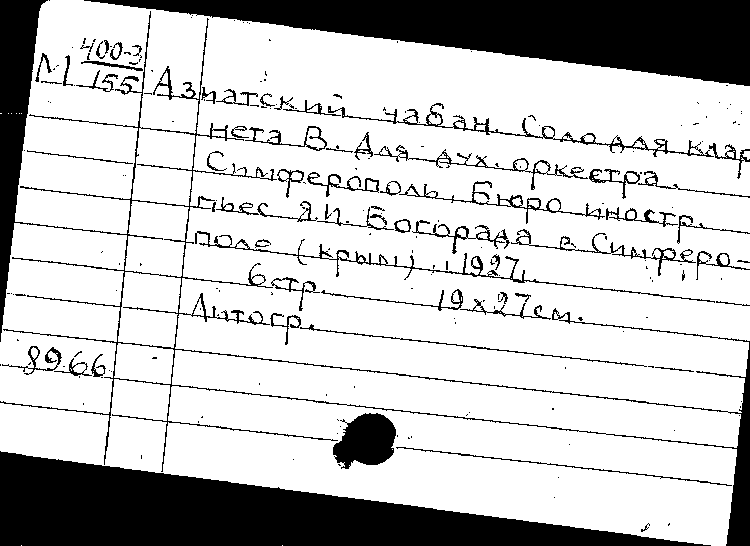 М 400-3
155
Азиатский чабан. Соло для клар
нета В. Для дух. оркестра.
Симферополь, Бюро иностр.
пьес Я.И. Богорада в Симферо-
поле (крым), 1927.
6стр. 19х27см.
Литогр.
8966